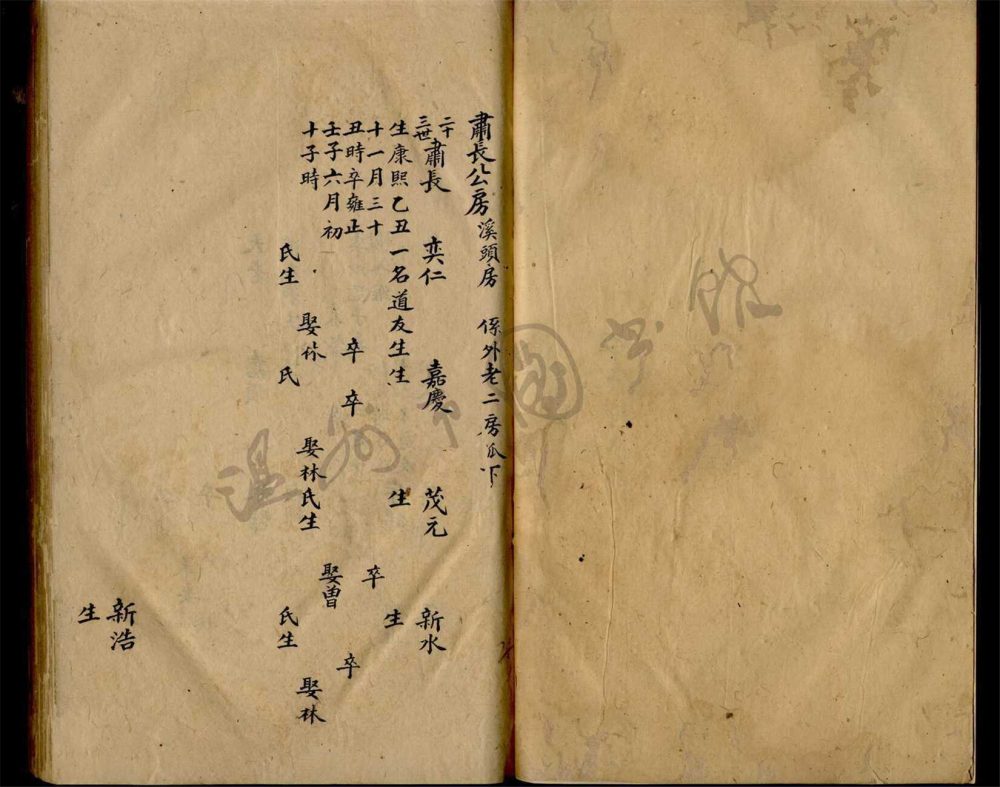 肅長公房 溪頭房 係外老二房瓜下
二十三世 肅長 奕仁 嘉慶 茂元 新水
生康熙乙丑 一名道友生 生 生 生
十一月三十 卒
丑時卒雍正 卒 卒 卒
壬子六月初 娶曾
十子時 娶林 娶林氏生 娶林
氏生 氏 氏生
新浩
生
温州市圖書館